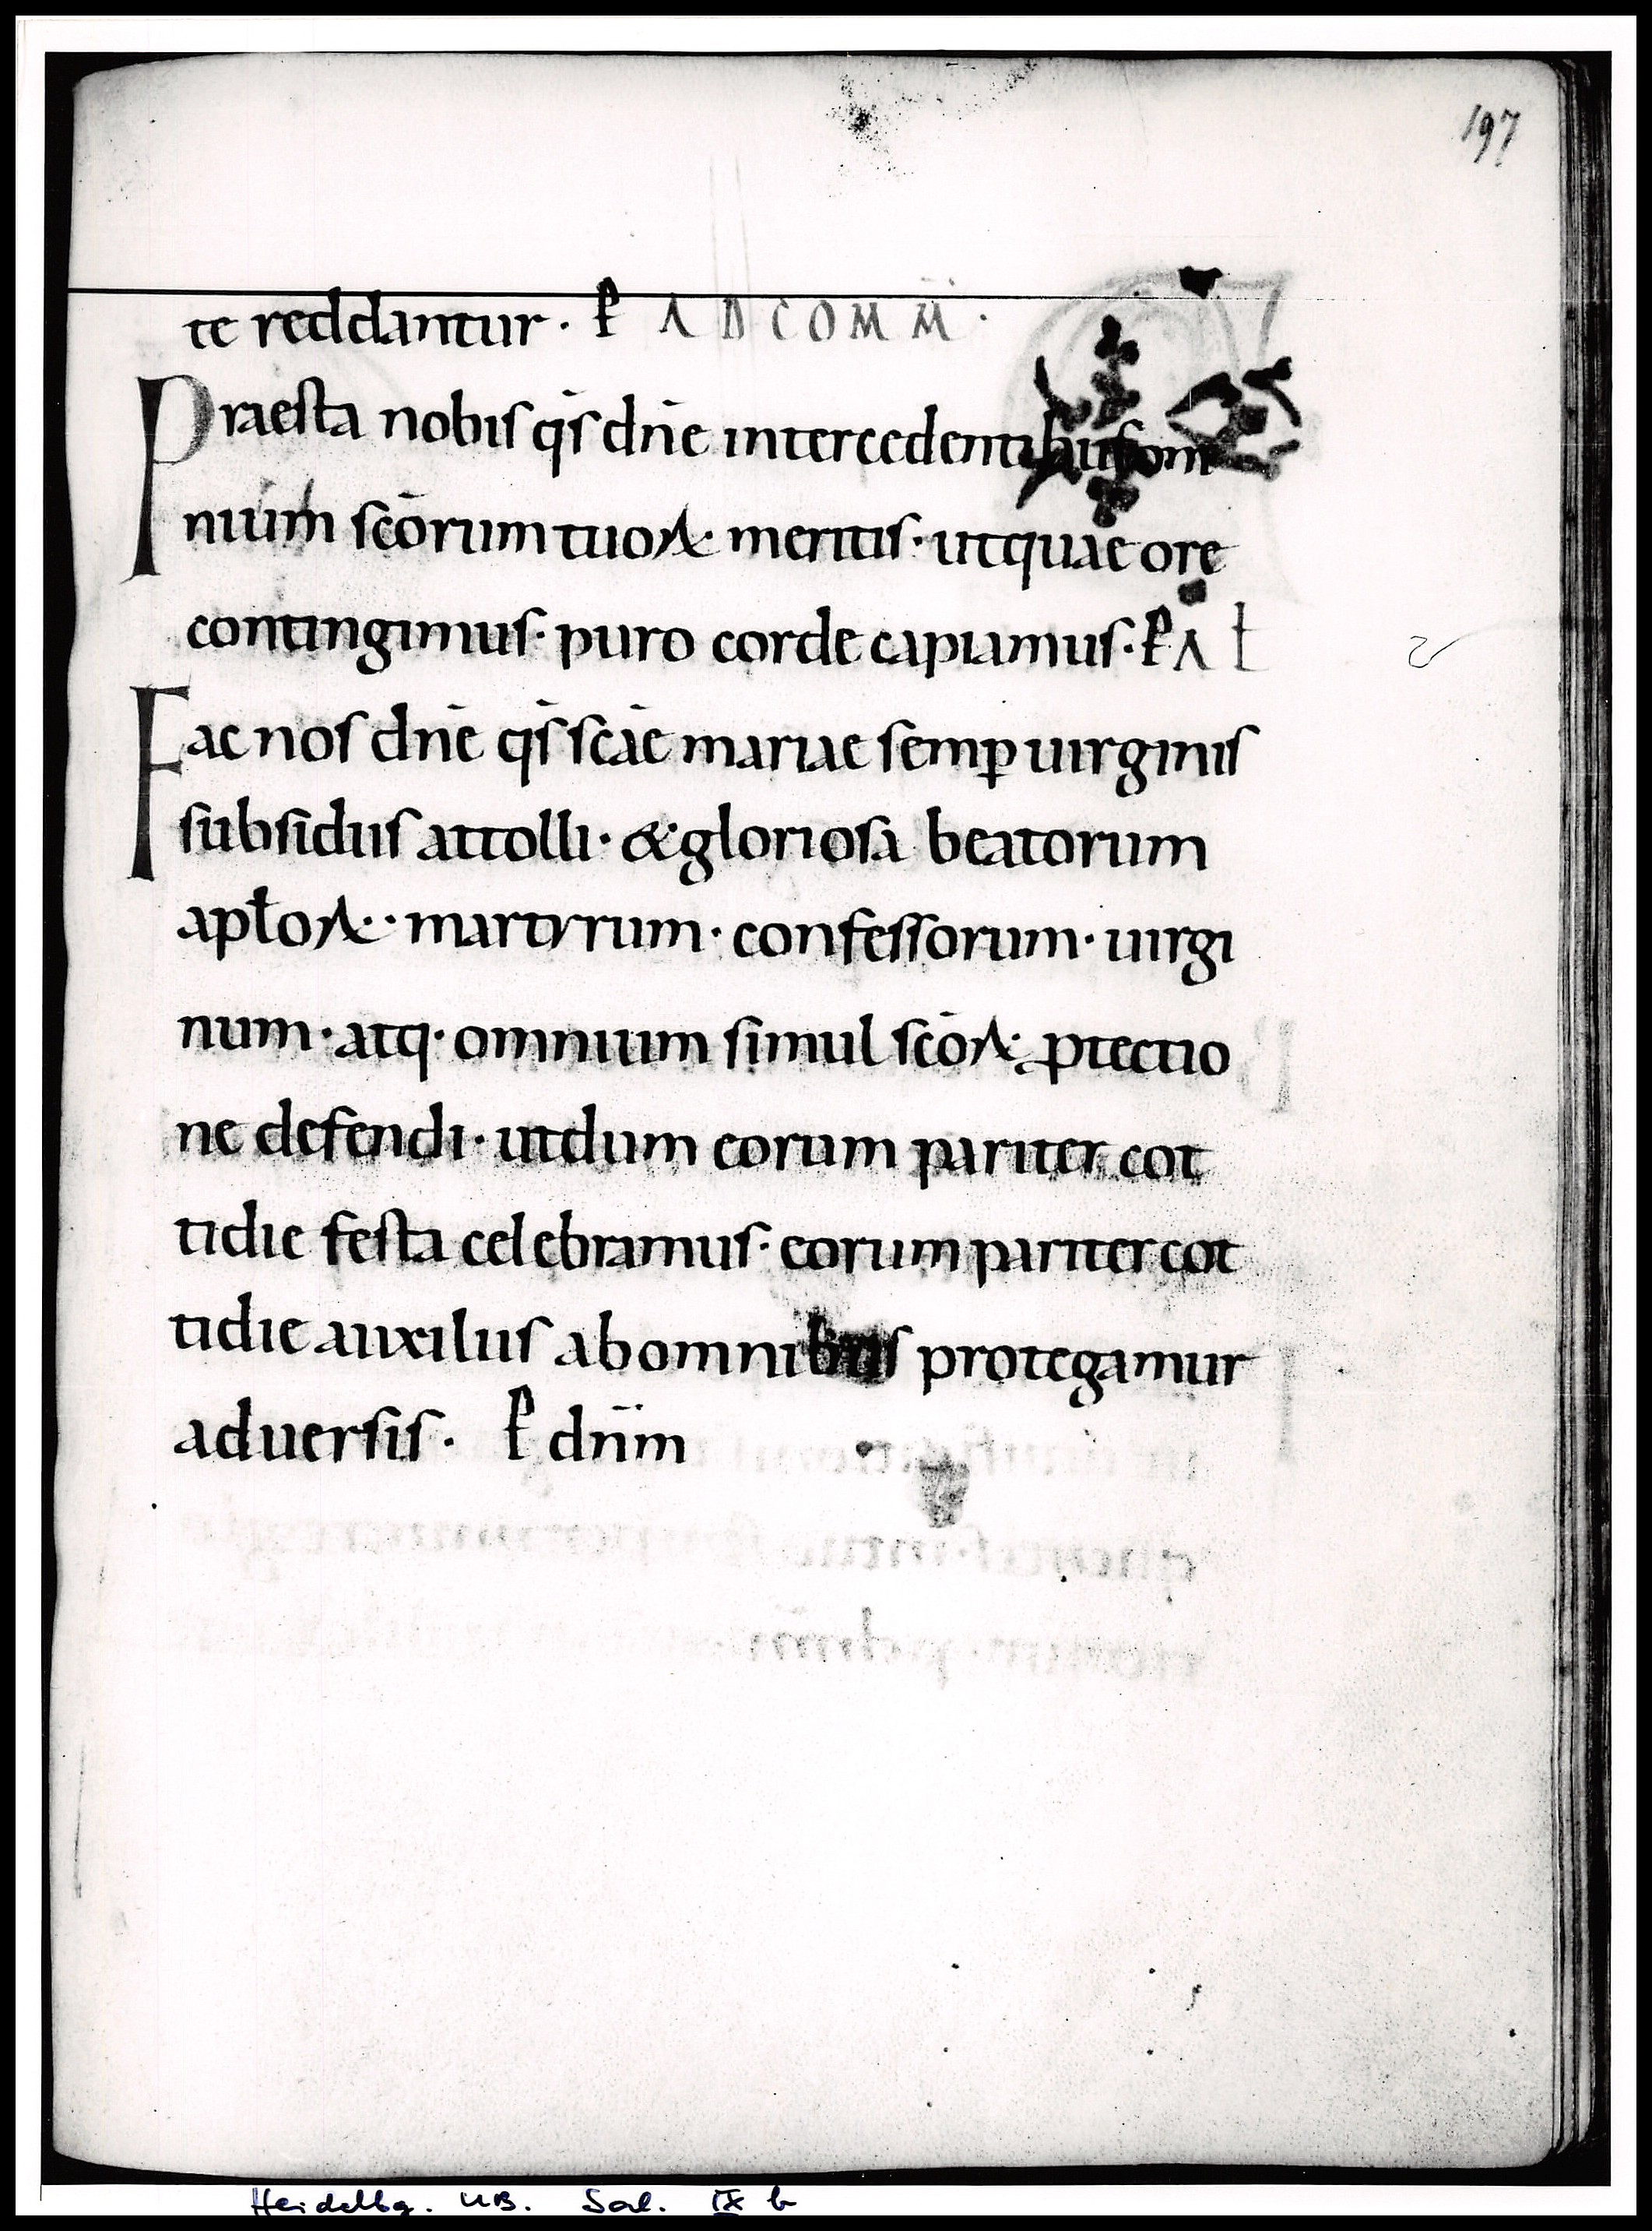 197
te reddantur · P AD COMM̄ ·
Praesta nobis q̄s dn̄e intercedentibus om
nium sc̄orum tuoꝝ · meritis · ut quae ore
contingimus · puro corde capiamus · P Al
Fac nos dn̄e q̄s sc̄ae mariae semꝑ uirginis
subsidiis attolli · & gloriosa beatorum
apl̄oꝝ · martyrum · confessorum · uirgi
num · atq · omnium simul sc̄oꝝ · ꝓtectio
ne defendi · ut dum eorum pariter cot
tidie festa celebramus · eorum pariter cot
tidie auxiliis ab omnibus protegamur
aduersis · P dn̄m
Heidelbg. UB. Sal. IX b